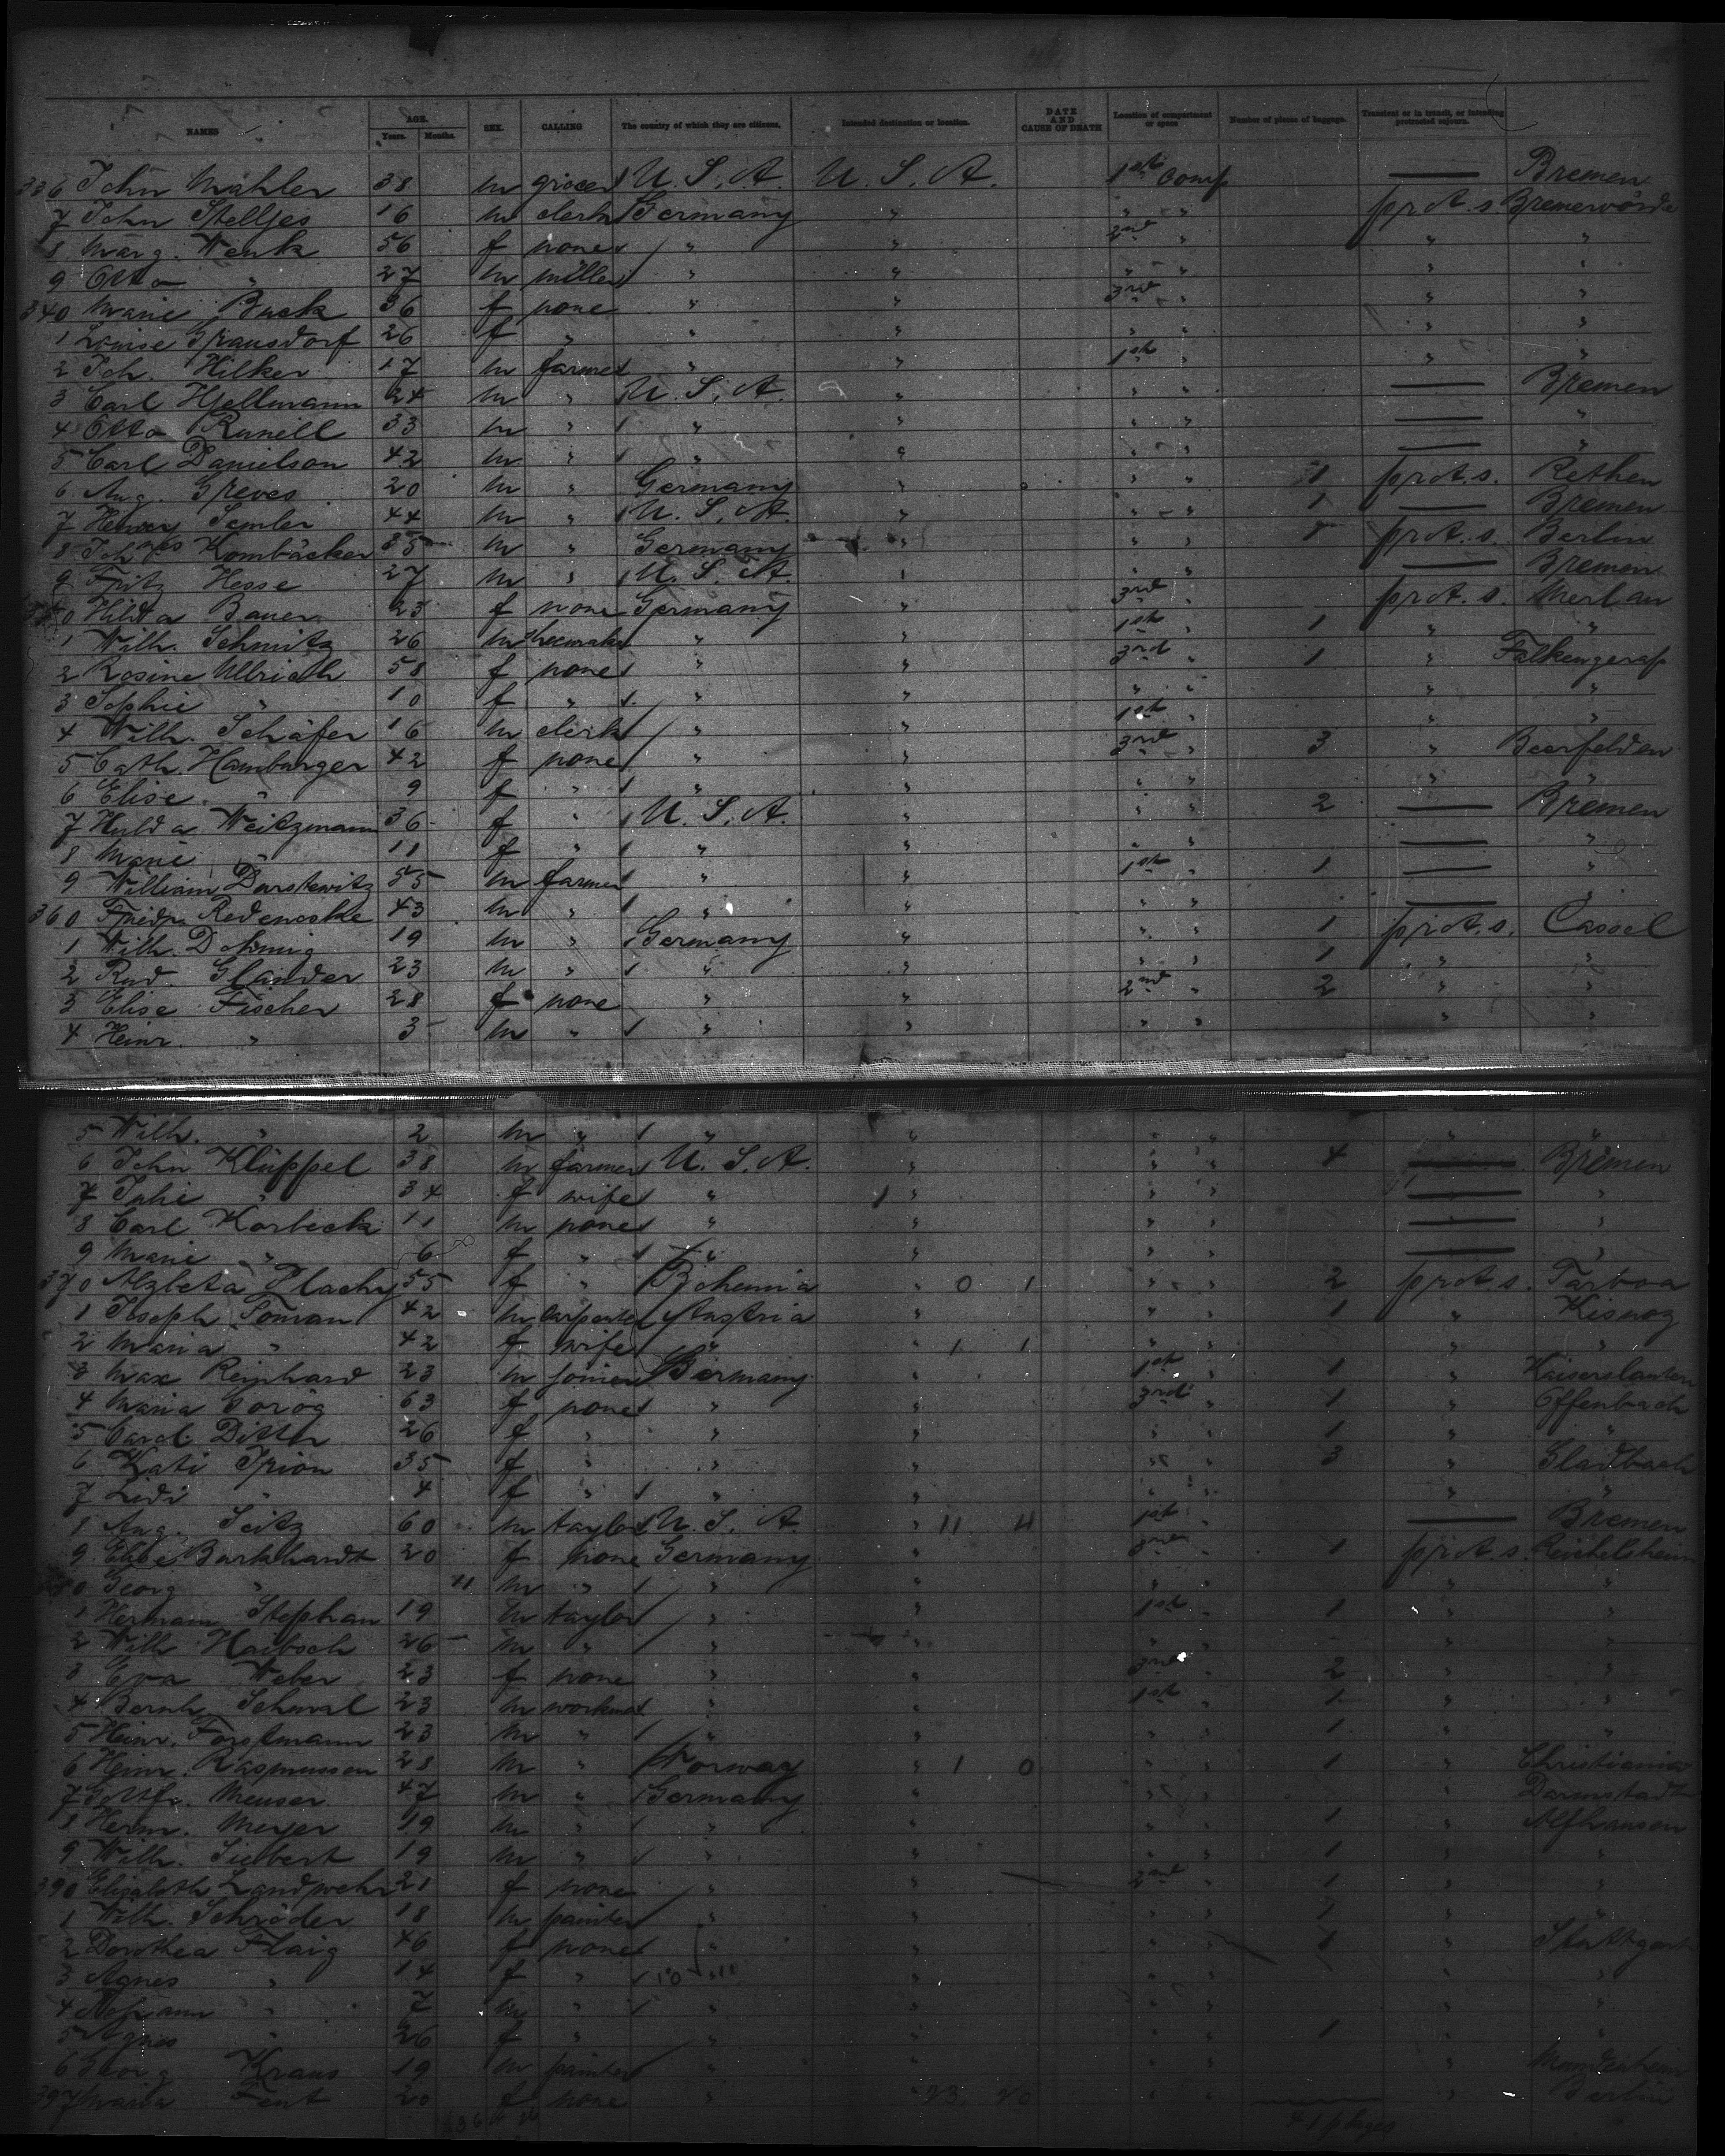 NAMES AGE. Years. Months. SEX. CALLING The country of which they are citizens. Intended destination or location. DATE AND CAUSE OF DEATH Location of compartment or space Number of pieces of baggage. Transient or in transit, or intending protracted sojourn.
336 John Mahler 38 m grocer U. S. A. U. S. A. 1st Comp — Bremen
7 John Stelljes 16 m clerk Germany " " " prot. s. Bremervörde
8 Marg. Wenk 56 f none " " 2nd " " "
9 Otto " 27 m miller " " " " " "
340 Marie Buck 36 f none " " 3rd " " "
1 Louise 26 f " " " " " " "
2 Joh. Hilker 17 m farmer " " 1st " " "
3 Carl Hjellmann 24 m " U. S. A. " " " — Bremen
4 Otto Runell 33 m " " " " " — "
5 Carl Danielson 42 m " " " " " — "
6 Aug. Greves 20 m " Germany " " " 1 prot. s. Rethen
7 Henry Semler 44 m " U. S. A. " " " 1 — Bremen
8 Johnes Kombäcker 35 m " Germany " " " 1 prot. s. Berlin
9 Fritz Hesse 27 m " U. S. A. " " " — Bremen
0 Hilda Bauer 23 f none Germany " 3rd " prot. s. Merlau
1 Wilh. Schmitz 26 m shoemaker " " 1st " 1 " "
2 Rosine Ullrich 58 f none " " 3rd " 1 "
3 Sophie " 10 f " " " " " " "
4 Wilh. Schäfer 16 m clerk " " 1st " " "
5 Cath. Hamburger 42 f none " " 3rd " 3 " Beerfelden
6 Elise " 9 f " " " " " " "
7 Hulda Weitzmann 36 f " U. S. A. " " " 2 — Bremen
8 Marie " 11 f " " " " " — "
9 William Darstewitz 55 m farmer " " 1st " 1 — "
360 Friedr. Redenoske 43 m " " " " " — "
1 Wilh. Döhmig 19 m " Germany " " " 1 prot. s. Cassel
2 Rud. Glander 23 m " " " " " 1 " "
3 Elise Fischer 28 f none " " 2nd " 2 " "
4 Heinr. " 3 m " " " " " " "
5 Wilh. " 2 m " " " " " " "
6 John Klüppel 38 m farmer U. S. A. " " " 4 — Bremen
7 " 34 f wife " " " " — "
8 Carl Korbeck 11 m none " " " " — "
9 Marie " 6 f " " " " " — "
370 Alzbeta Plachy 55 f " Bohemia " 0 1 " " 2 prot. s.
1 Joseph Soman 42 m carpenter Austria " " " 1 "
2 Maria " 42 f wife " " 1 1 " " " "
3 Max Reinhard 23 m joiner Germany " 1st " 1 " Kaiserslautern
4 Maria Görög 63 f none " " 3rd " 1 " Offenbach
5 Carol. Ditter 26 f " " " " " 1 " "
6 Kati Irion 35 f " " " " " 3 " Gladbach
7 Lidi " 4 f " " " " " " "
8 Aug. Seitz 60 m taylor U. S. A. " 11 4 1st " — Bremen
9 Elise Burkhardt 20 f none Germany " 3rd " 1 prot. s. Reichelsheim
380 Georg " 11 m " " " " " " "
1 Hermann Stephan 19 m taylor " " 1st " 1 " "
2 Wilh. Haibach 26 m " " " " " " "
3 Eva Weber 23 f none " " 3rd " 2 " "
4 Bernh. Schwal 23 m workman " " 1st " 1 " "
5 Heinr. Forstmann 23 m " " " " " 1 " "
6 Heinr. Rasmussen 28 m " Norway " 1 0 " " 1 " Christiania
7 Gottfr. Meuser 47 m " Germany " " " " Darmstadt
8 Herm. Meyer 19 m " " " " " 1 " Alfhausen
9 Wilh. Siebert 19 m " " " " " 1 " "
390 Elisabeth Landwehr 21 f none " " 2nd " 1 " "
1 Wilh. Schröder 18 m painter " " " " 1 " "
2 Dorothea Flaig 46 f none " " " " 1 " Stuttgart
3 Agnes " 14 f " " " " " " "
4 Johann " 7 m " " " " " " "
5 Agnes " 26 f " " " " " 1 " "
6 Georg Kraus 19 m painter " " " " "
397 Maria Fent 20 f none " " " " " Berlin